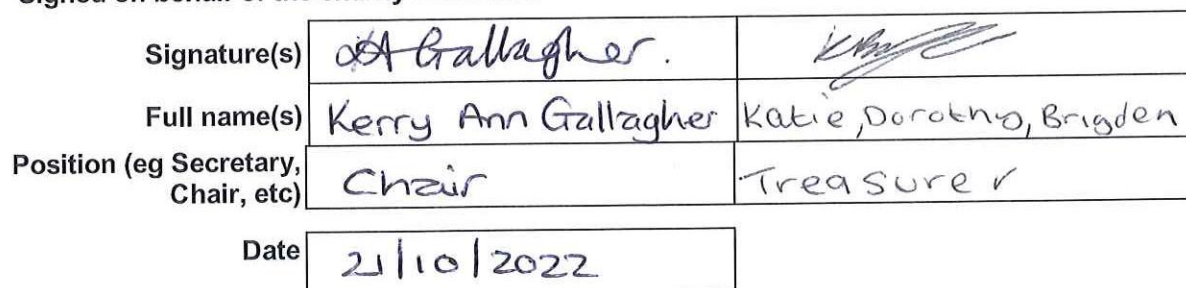 Signature(s) Gallagher.
Full name(s) Kerry Ann Gallagher Katie, Dorothy, Brigden
Position (eg Secretary,
Chair, etc) Chair Treasurer
Date 21/10/2022